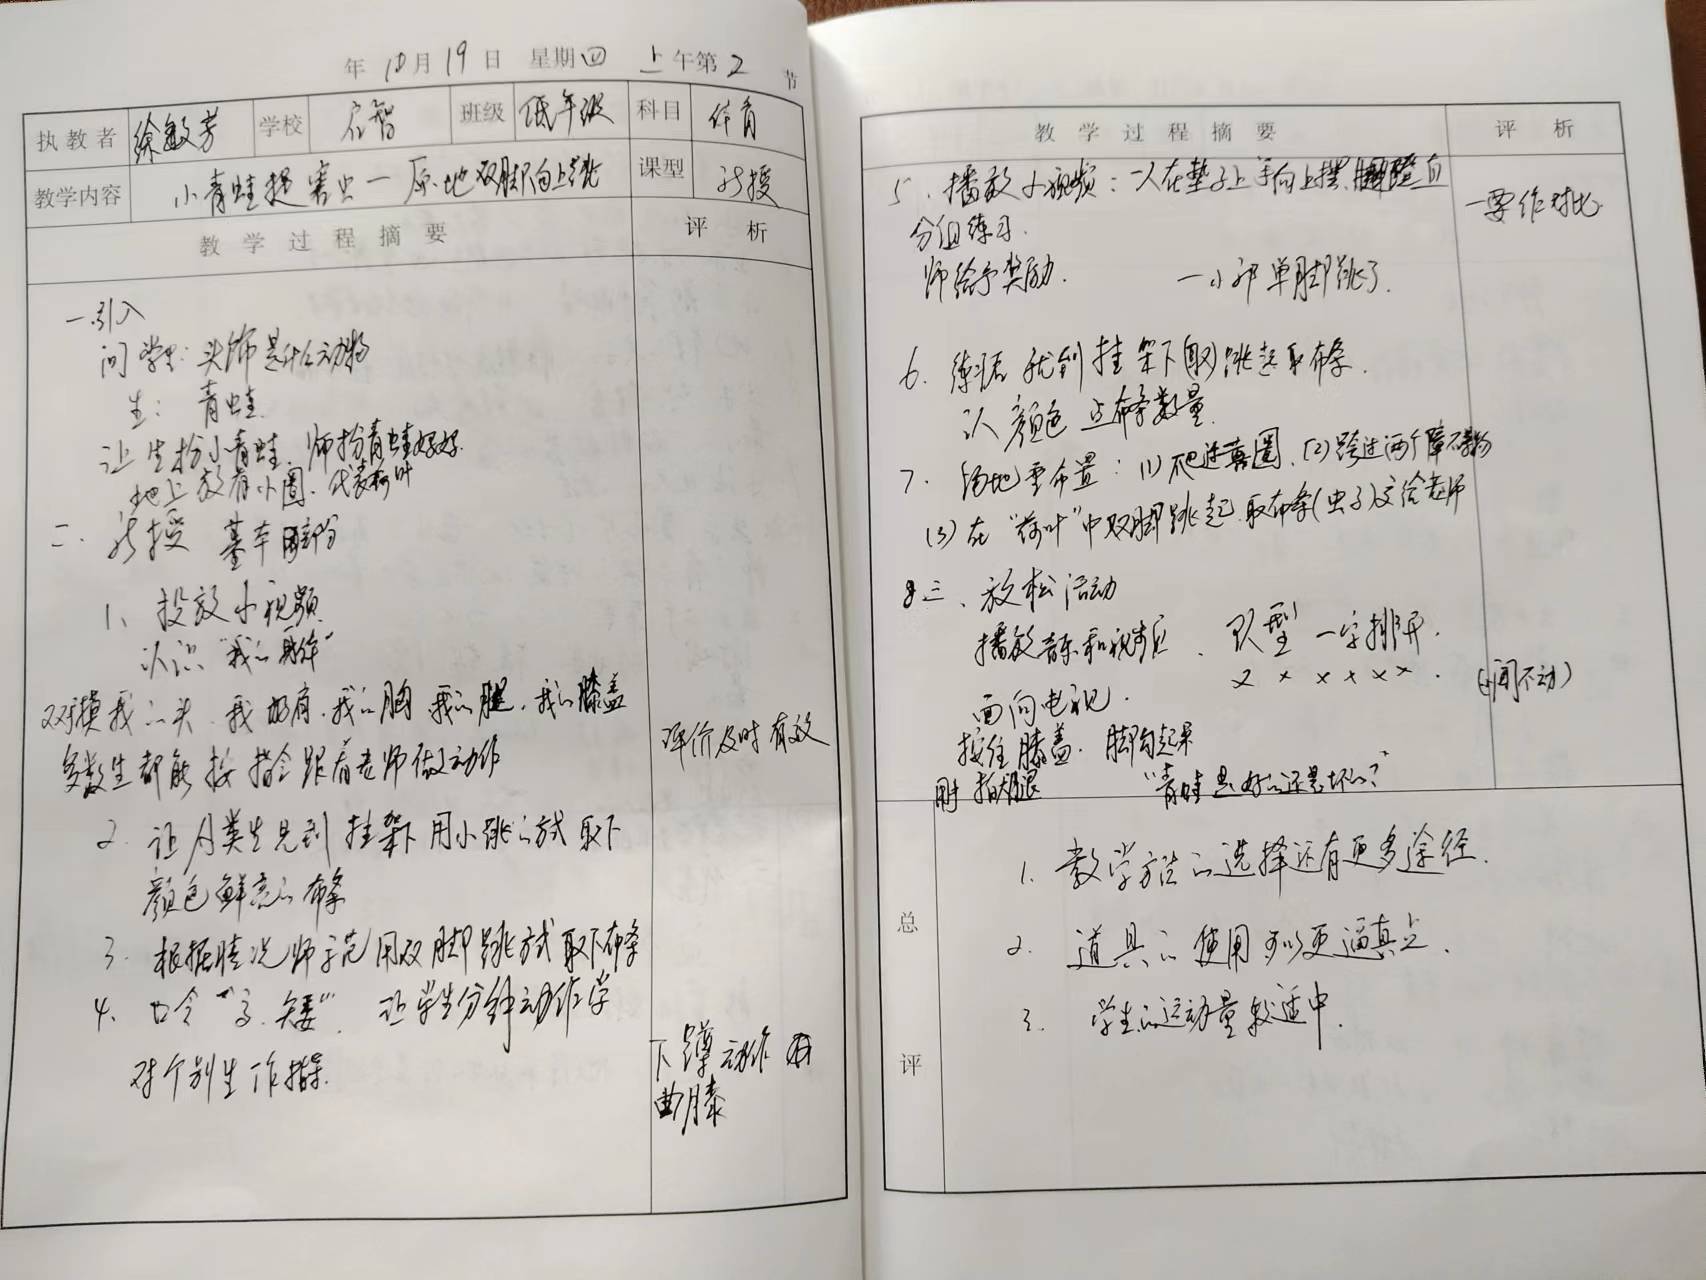 年 10月 19日 星期四 上午第 2 节
执教者 徐敏芳 学校 启智 班级 低年级 科目 体育
教学内容 小青蛙捉害虫一原地双脚向上跳 课型 新授
教学过程摘要 评析
一.引入
问学生:头饰是什么动物
生:青蛙
让生扮小青蛙.师扮青蛙妈妈.
地上放有小圈.代表荷叶
二、新授 基本部分
1、投放小视频
认识"我的身体"
摸我的头.我的肩.我的胸 我的腿.我的膝盖
多数生都能按指令跟着老师做动作
评价及时有效
2. 让A类生先到挂架下用小跳的方式取下
颜色鲜亮的布条
3. 根据情况师示范用双脚跳方式取下布条
4、口令"高.矮".让学生分钟动作学
对个别生作指导.
下蹲动作
曲膝
教学过程摘要 评析
5.播放小视频:一人在垫子上手向上摆.脚蹬直
一要作对比.
分组练习.
师给予奖励. 一小部单脚跳了.
6. 练完后就到挂架下(取)跳起取布条.
认颜色 点布条数量.
7. 场地重布置:(1)爬过圈.(2)跨过两个障碍物
(3)在"荷叶"中双脚跳起.取布条(虫子)交给老师
三、放松活动
播放音乐和视频、队型一字排开.
x x x x x x .
面向电视.
按住膝盖.脚勾起来
拍大腿 "青蛙是好的还是坏的?"
总评
1. 教学方法的选择还有更多途径.
2. 道具的使用可以更逼真点.
3. 学生的运动量较适中.